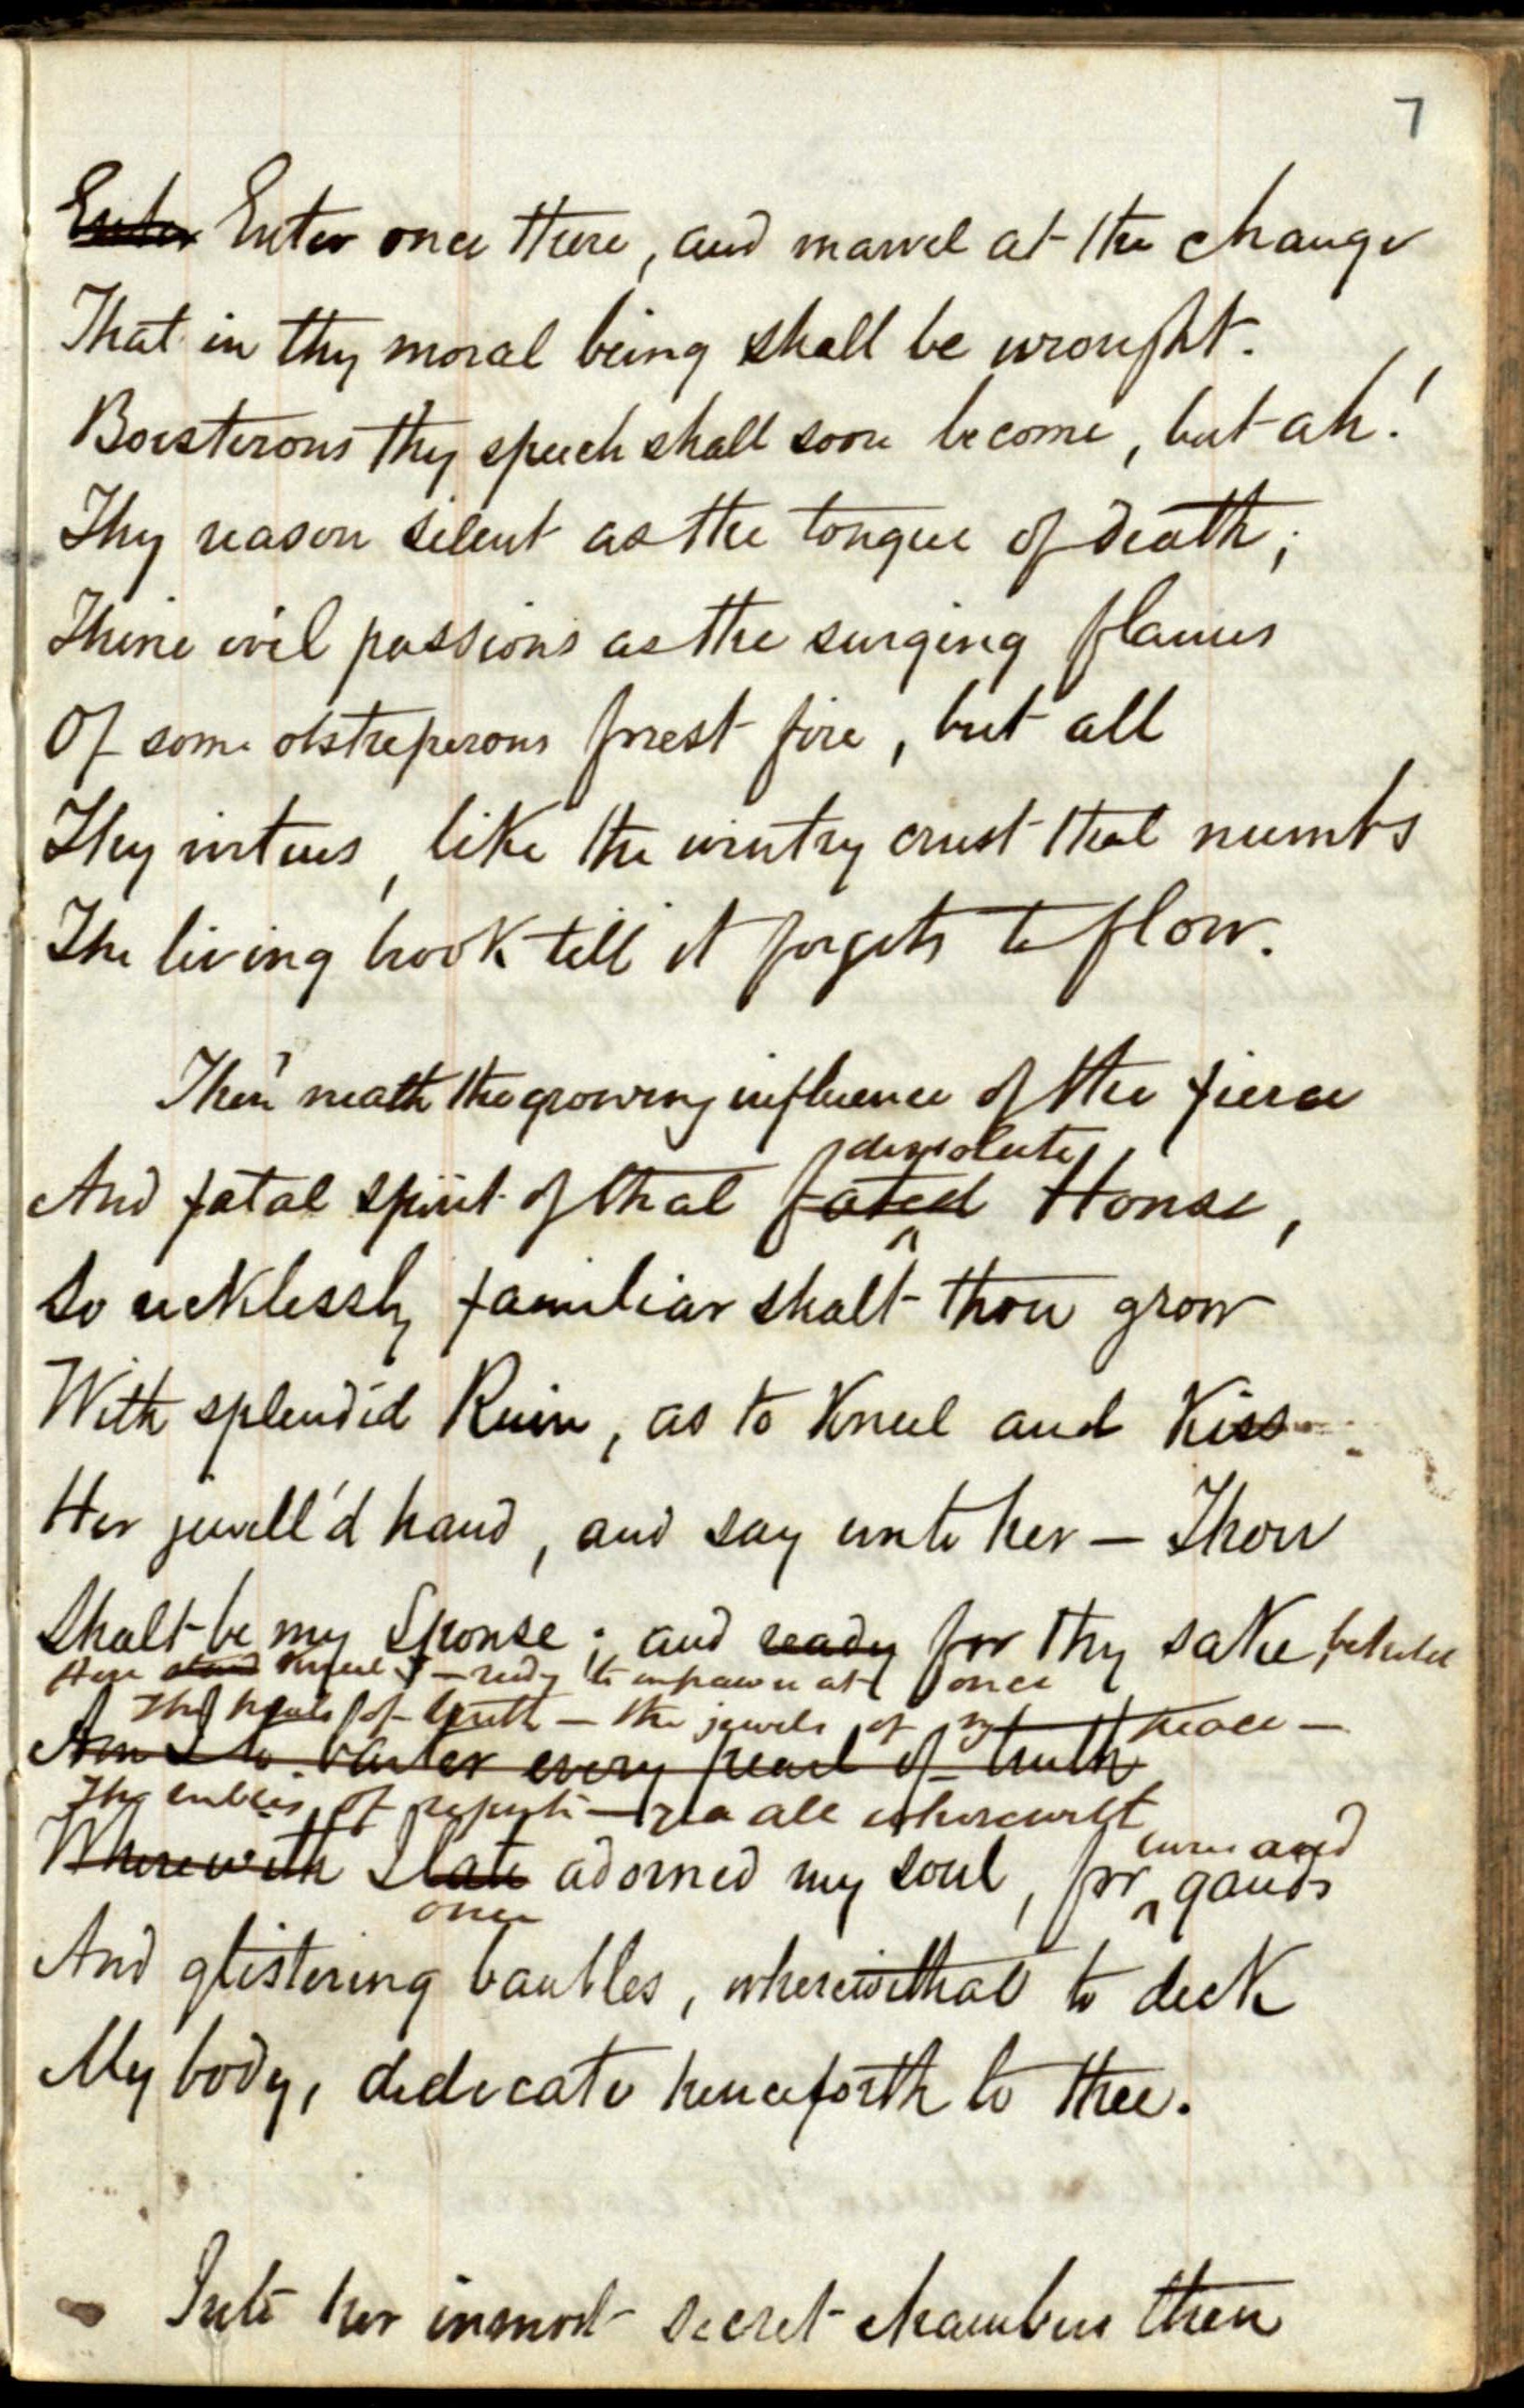 7
Enter Enter once there, and marvel at the change
That in thy moral being shall be wrought.
Boisterous thy speech shall soon become, but ah!
Thy reason silent as the tongue of death;
Thine evil passions as the surging flames
Of some obstreperous forest fire, but all
Thy virtues, like the wintry crust that numbs
The living brook till it forgets to flow.
Then 'neath the growing influence of the fierce
dissolute
And fatal spirit of that fated House,
So recklessly familiar shalt thou grow
With splendid Ruin, as to kneel and kiss
Her jewell'd hand, and say unto her — Thou
Shalt be my Spouse; and ready for thy sake, behold
Here stand kneel I — ready to impawn at once
The pearls of truth — the jewels of my peace —
Am I to barter every pearl of truth
The rubies of — yea all wherewith
Wherewith I late adorned my soul, for gauds
once
And glistering baubles, wherewithal to deck
My body, dedicate henceforth to thee.
Into her inmost secret chambers then